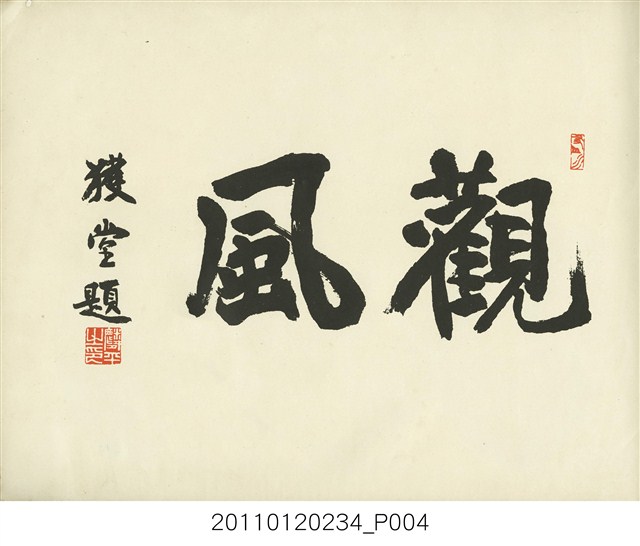 觀風
獲堂題
20110120234_P004